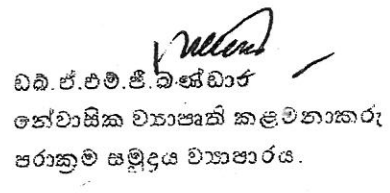 ඩබ්.ඒ.එම්.ජී.බණ්ඩාර
නේවාසික ව්‍යාපෘති කළමනාකරු
පරාක්‍රම සමුද්‍රය ව්‍යාපාරය.